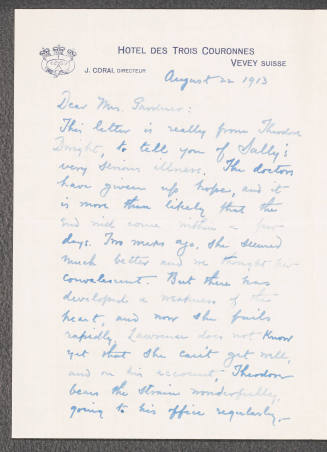 HOTEL DES TROIS COURONNES
VEVEY SUISSE
J. CORAI, DIRECTEUR
August 22 1913
Dear Mrs. Gardner:
This letter is really from Theodore
Dwight, to tell you of Sally's
very serious illness. The doctors
have given up hope, and it
is more than likely that the
end will come within a few
days. Two weeks ago, she seemed
much better and we thought her
convalescent. But there has
developed a weakness of the
heart, and now she fails
rapidly. Lawrence does not know
yet that she can't get well,
and on his account, Theodore
bears the strain wonderfully,
going to his office regularly,